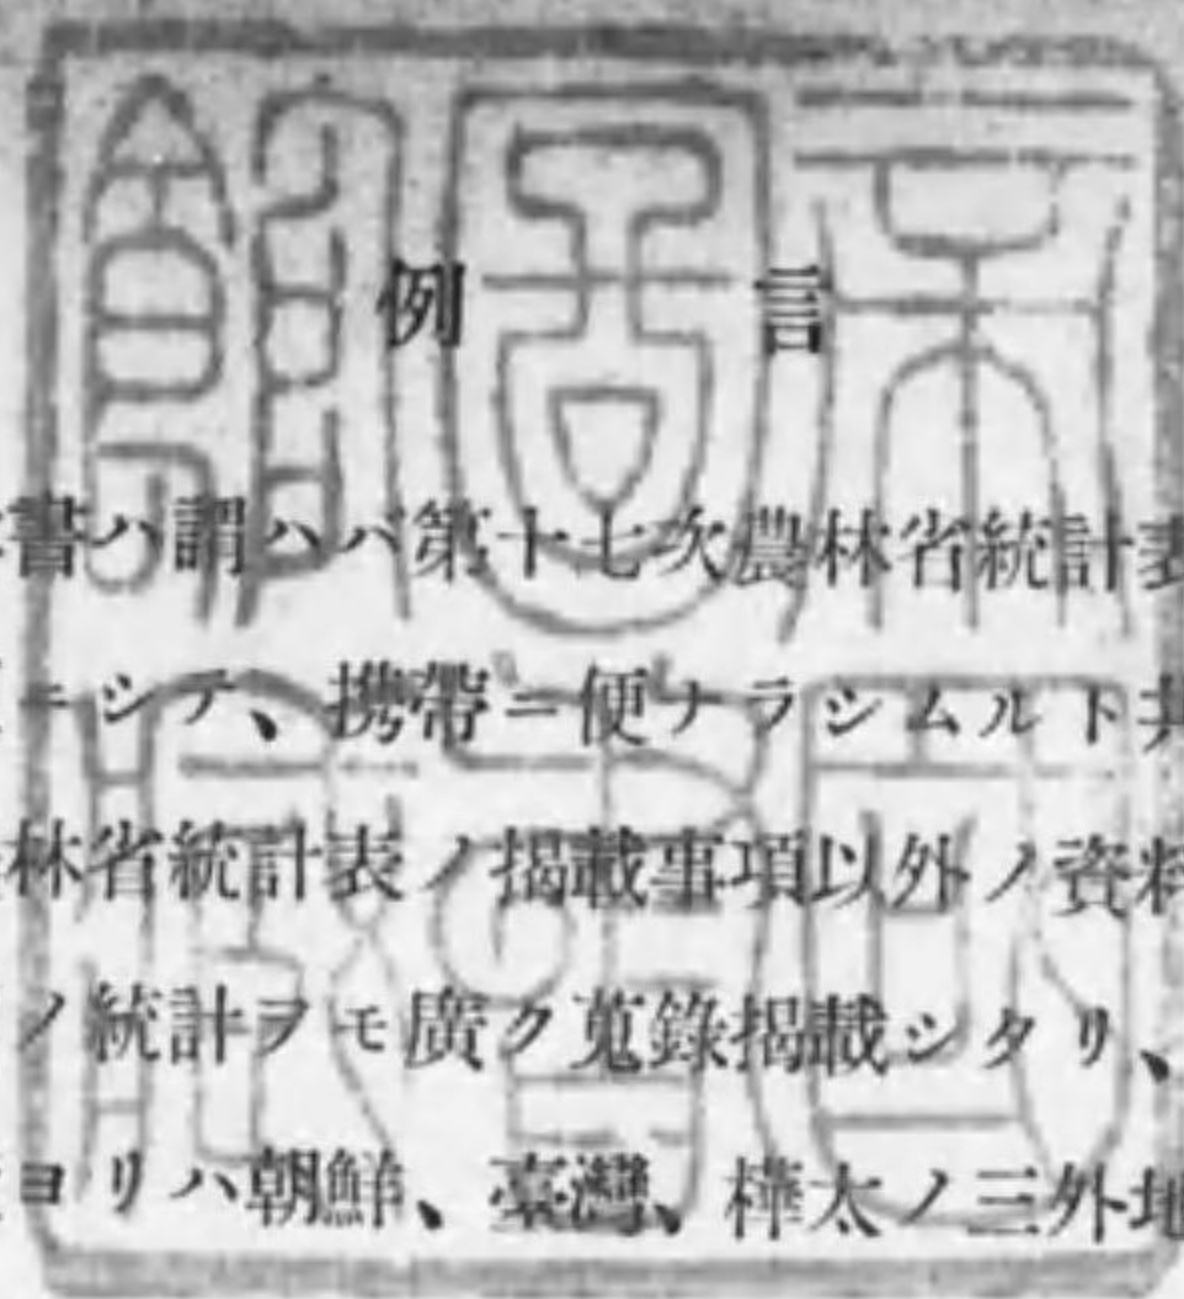 例言
書ハ謂ハバ第十七次農林省統計表
ニシテ、携帶ニ便ナラシムルト共
林省統計表ノ揭載事項以外ノ資料
ノ統計ヲモ廣ク蒐錄揭載シタリ、
ヨリハ朝鮮、臺灣、樺太ノ三外地